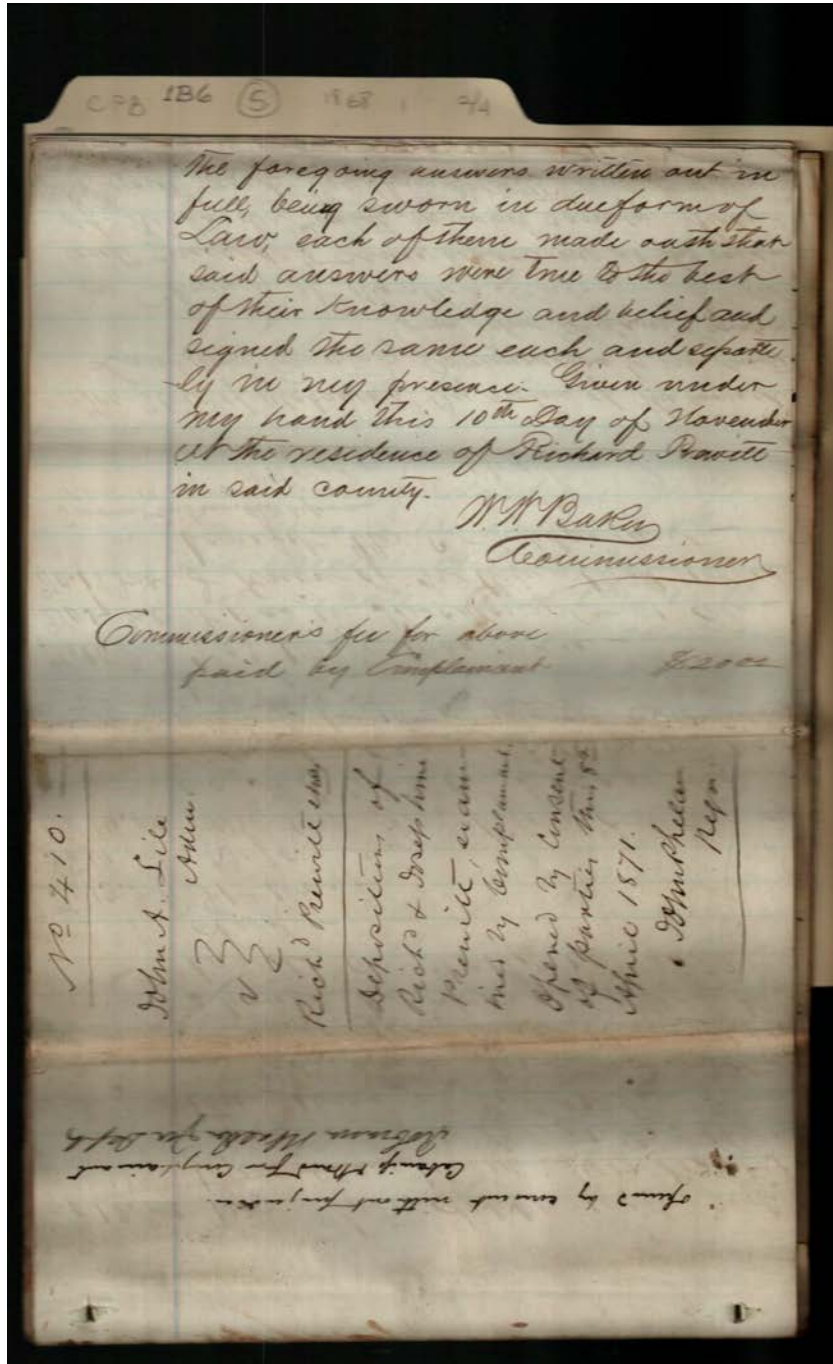 CFB 1B6 5 1868 1 2/4
the foregoing answers written out in
full, being sworn in due form of
Law, each of them made oath that
said answers were true to the best
of their knowledge and belief and
signed the same each and separate
ly in my presence. Given under
my hand this 10th Day of November
at the residence of Richard Prewitt
in said county.
W. W. Baker
Commissioner
Commissioner's fee for above
paid by Complainant $20.00
No 410.
John A. Lile
Adm.
vs
Richd Prewitt
Depositions of
Richd & Josephine
Prewitt, exam-
ined by Complainant.
Opened by Consent
of parties this 8th
April 1871.
John Phelan
Regr.
Opened by consent without prejudice.
for Complainant
for Defts